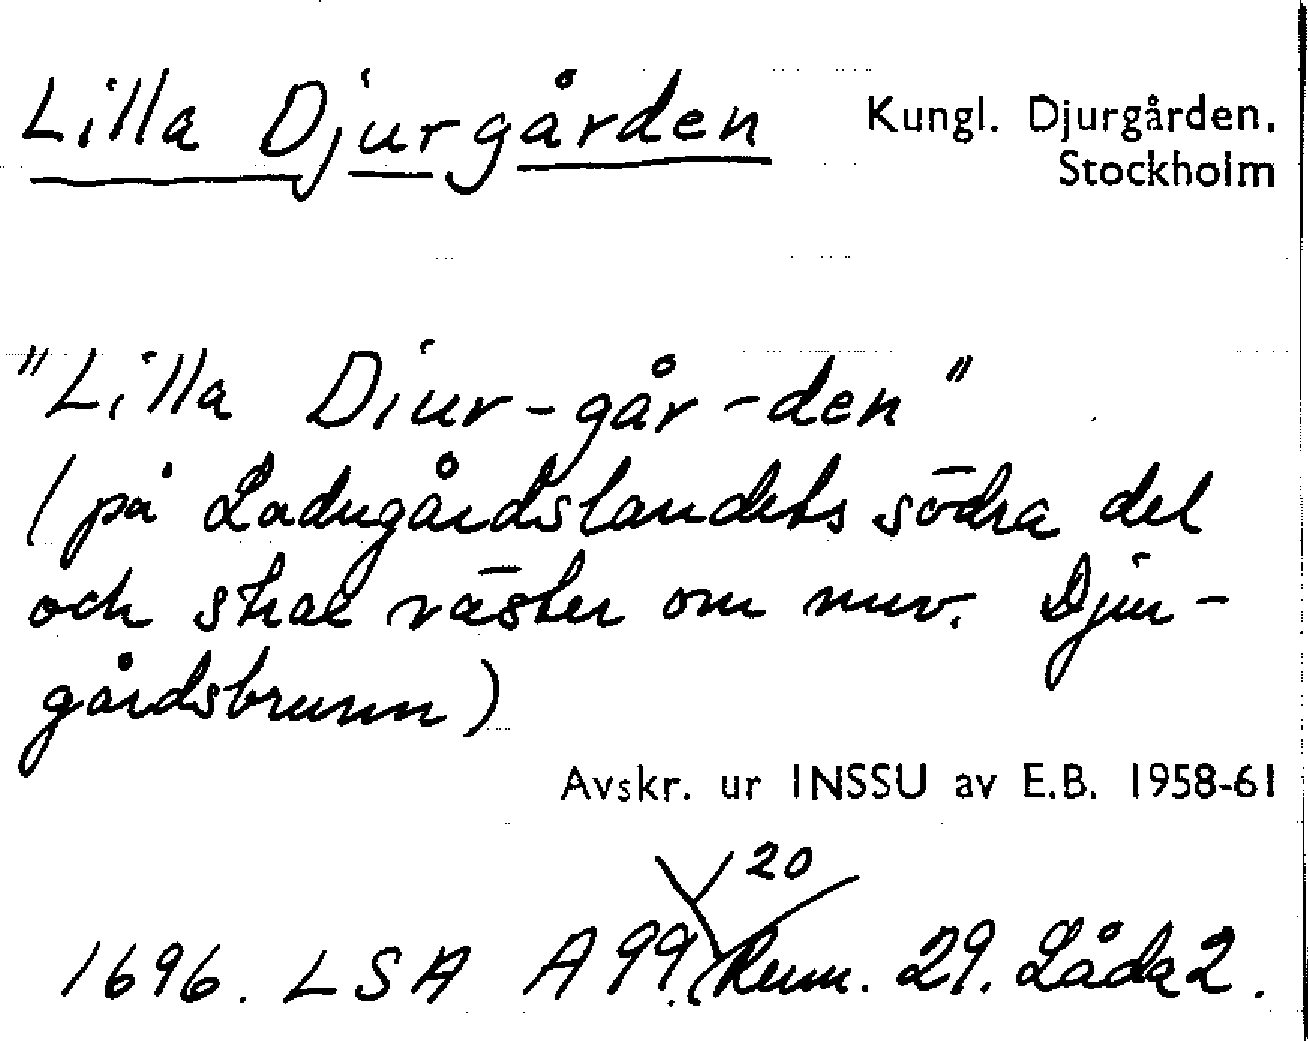 Lilla Djurgården
Kungl. Djurgården.
Stockholm
"Lilla Diur-går-den"
(på Ladugårdslandets södra del
och strax väster om nuv. Djur-
gårdsbrunn)
Avskr. ur INSSU av E.B. 1958-61
20
1696. LSA A 99. Rum. 29. Låda 2.